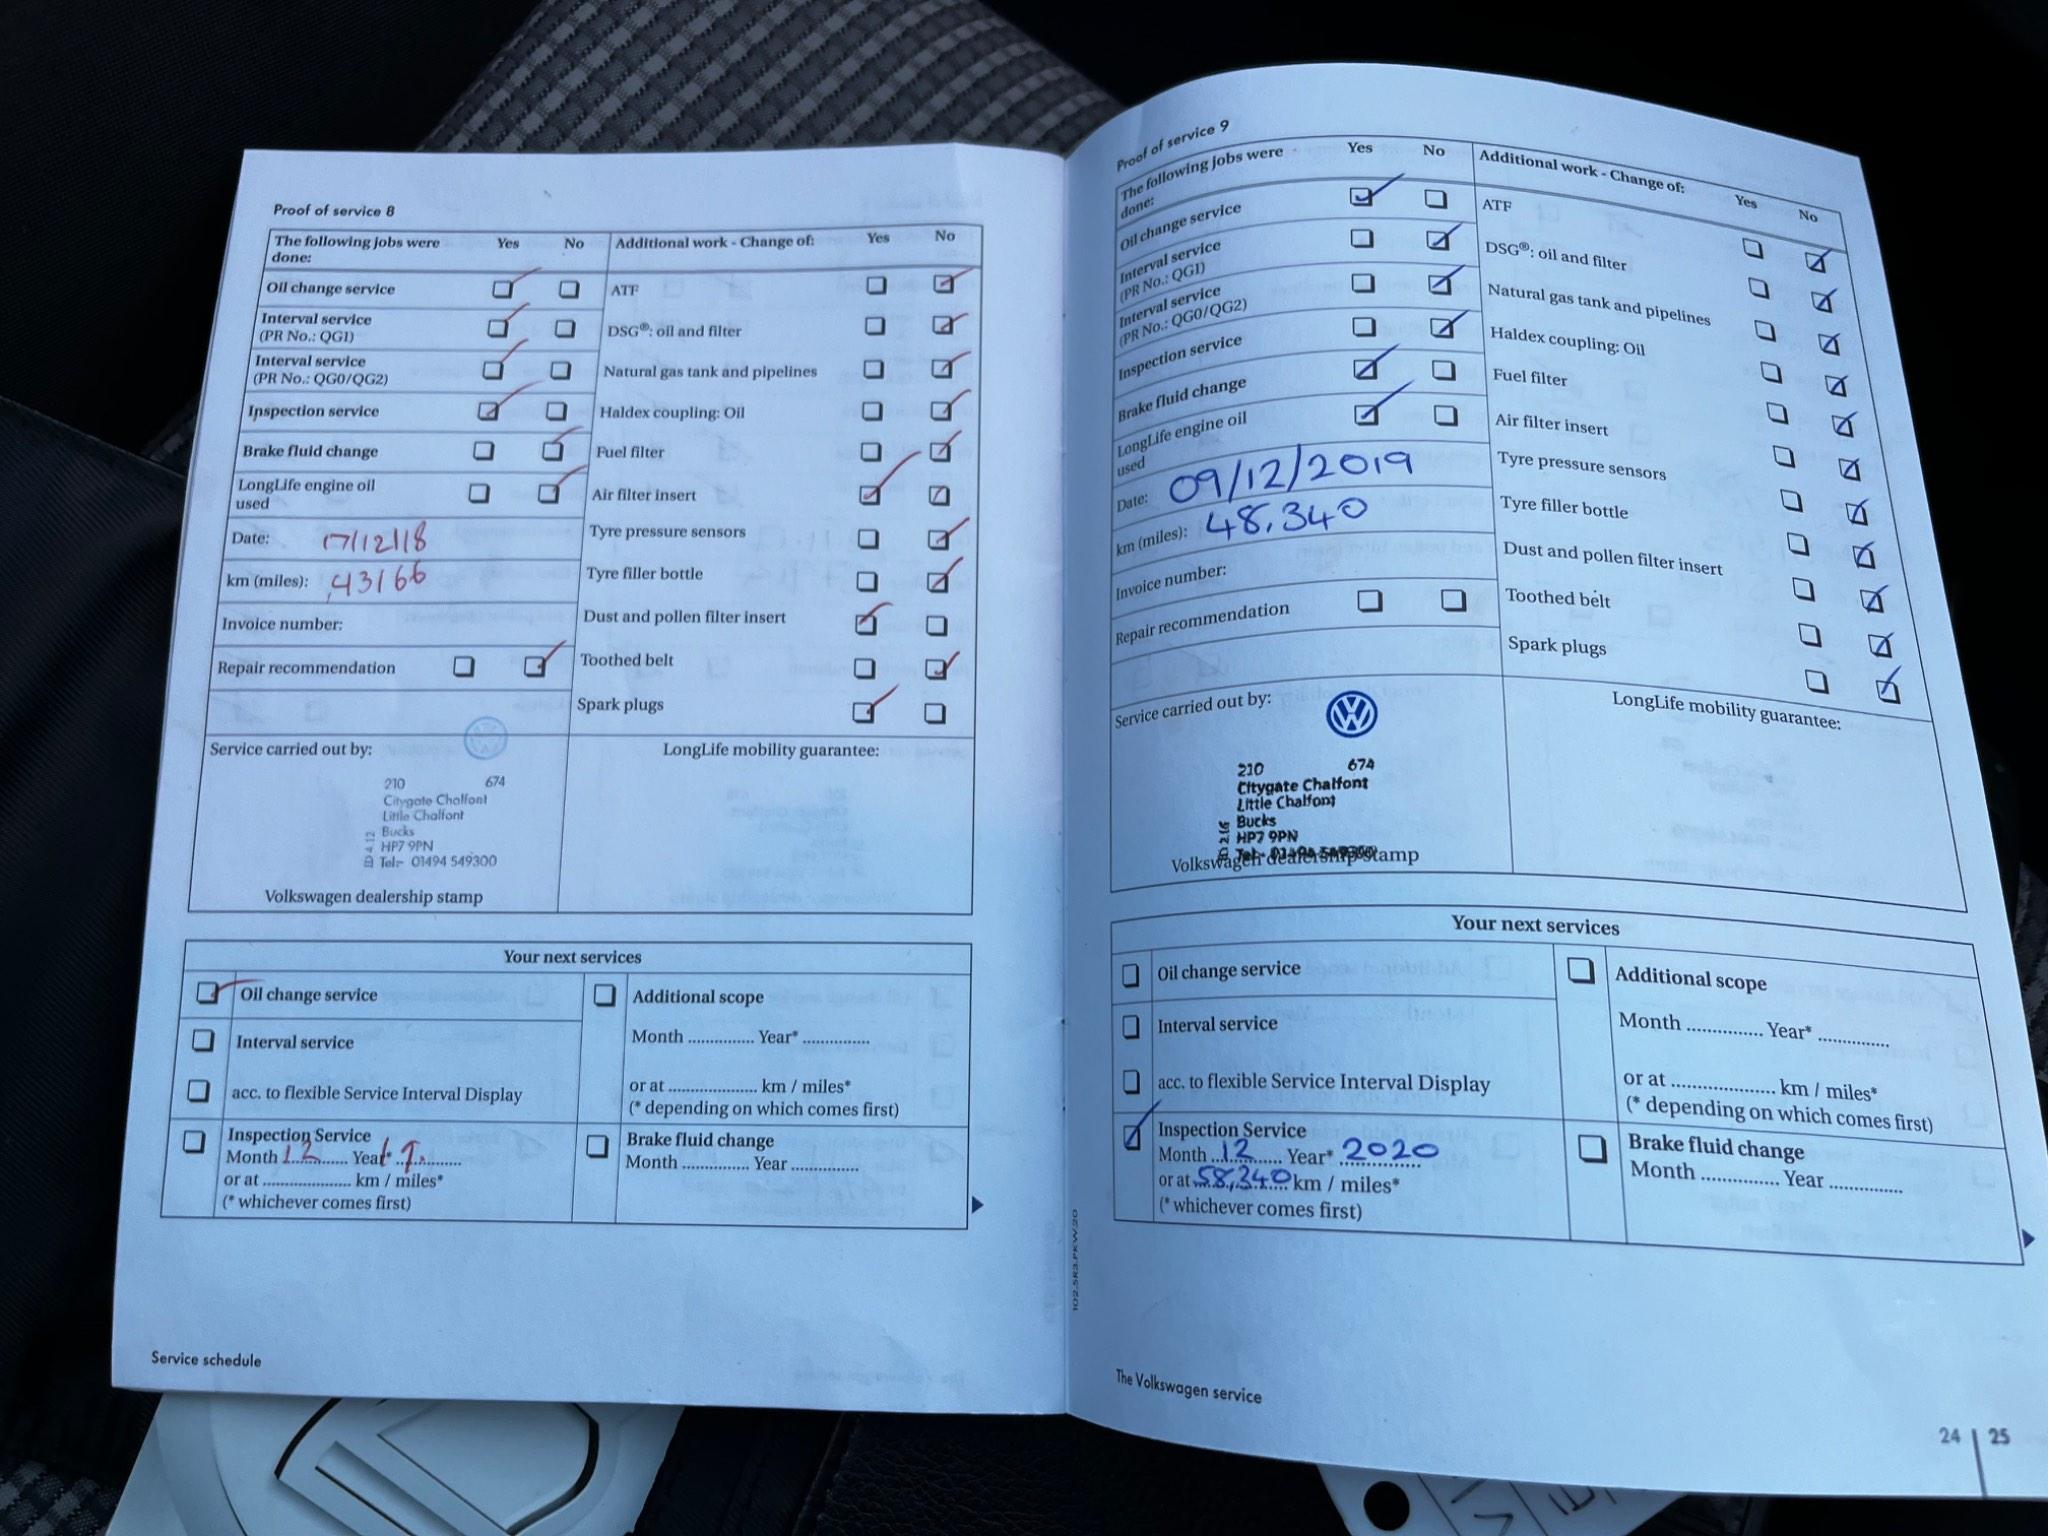 Proof of service 8
The following jobs were done: Yes No
Oil change service
Interval service
(PR No.: QG1)
Interval service
(PR No.: QG0/QG2)
Inspection service
Brake fluid change
LongLife engine oil
used
Date: 17/12/18
km (miles): 43166
Invoice number:
Repair recommendation
Additional work - Change of: Yes No
ATF
DSG®: oil and filter
Natural gas tank and pipelines
Haldex coupling: Oil
Fuel filter
Air filter insert
Tyre pressure sensors
Tyre filler bottle
Dust and pollen filter insert
Toothed belt
Spark plugs
Service carried out by:
210 674
Citygate Chalfont
Little Chalfont
Bucks
HP7 9PN
Tel:- 01494 549300
ID 4.12
Volkswagen dealership stamp
LongLife mobility guarantee:
Your next services
Oil change service
Interval service
acc. to flexible Service Interval Display
Inspection Service
Month 12 Year* 19
or at .................... km / miles*
(* whichever comes first)
Additional scope
Month ............... Year* ...............
or at .................... km / miles*
(* depending on which comes first)
Brake fluid change
Month ............... Year ...............
Service schedule
Proof of service 9
The following jobs were
done: Yes No
Oil change service
Interval service
(PR No.: QG1)
Interval service
(PR No.: QG0/QG2)
Inspection service
Brake fluid change
LongLife engine oil
used
Date: 09/12/2019
km (miles): 48,340
Invoice number:
Repair recommendation
Additional work - Change of: Yes No
ATF
DSG®: oil and filter
Natural gas tank and pipelines
Haldex coupling: Oil
Fuel filter
Air filter insert
Tyre pressure sensors
Tyre filler bottle
Dust and pollen filter insert
Toothed belt
Spark plugs
Service carried out by:
210 674
Citygate Chalfont
Little Chalfont
Bucks
HP7 9PN
Tel:- 01494 549300
Volkswagen dealership stamp
LongLife mobility guarantee:
Your next services
Oil change service
Interval service
acc. to flexible Service Interval Display
Inspection Service
Month 12 Year* 2020
or at 58,340 km / miles*
(* whichever comes first)
Additional scope
Month ............... Year* ...............
or at .................... km / miles*
(* depending on which comes first)
Brake fluid change
Month ............... Year ...............
102.5R3.PKW.20
The Volkswagen service
24 | 25